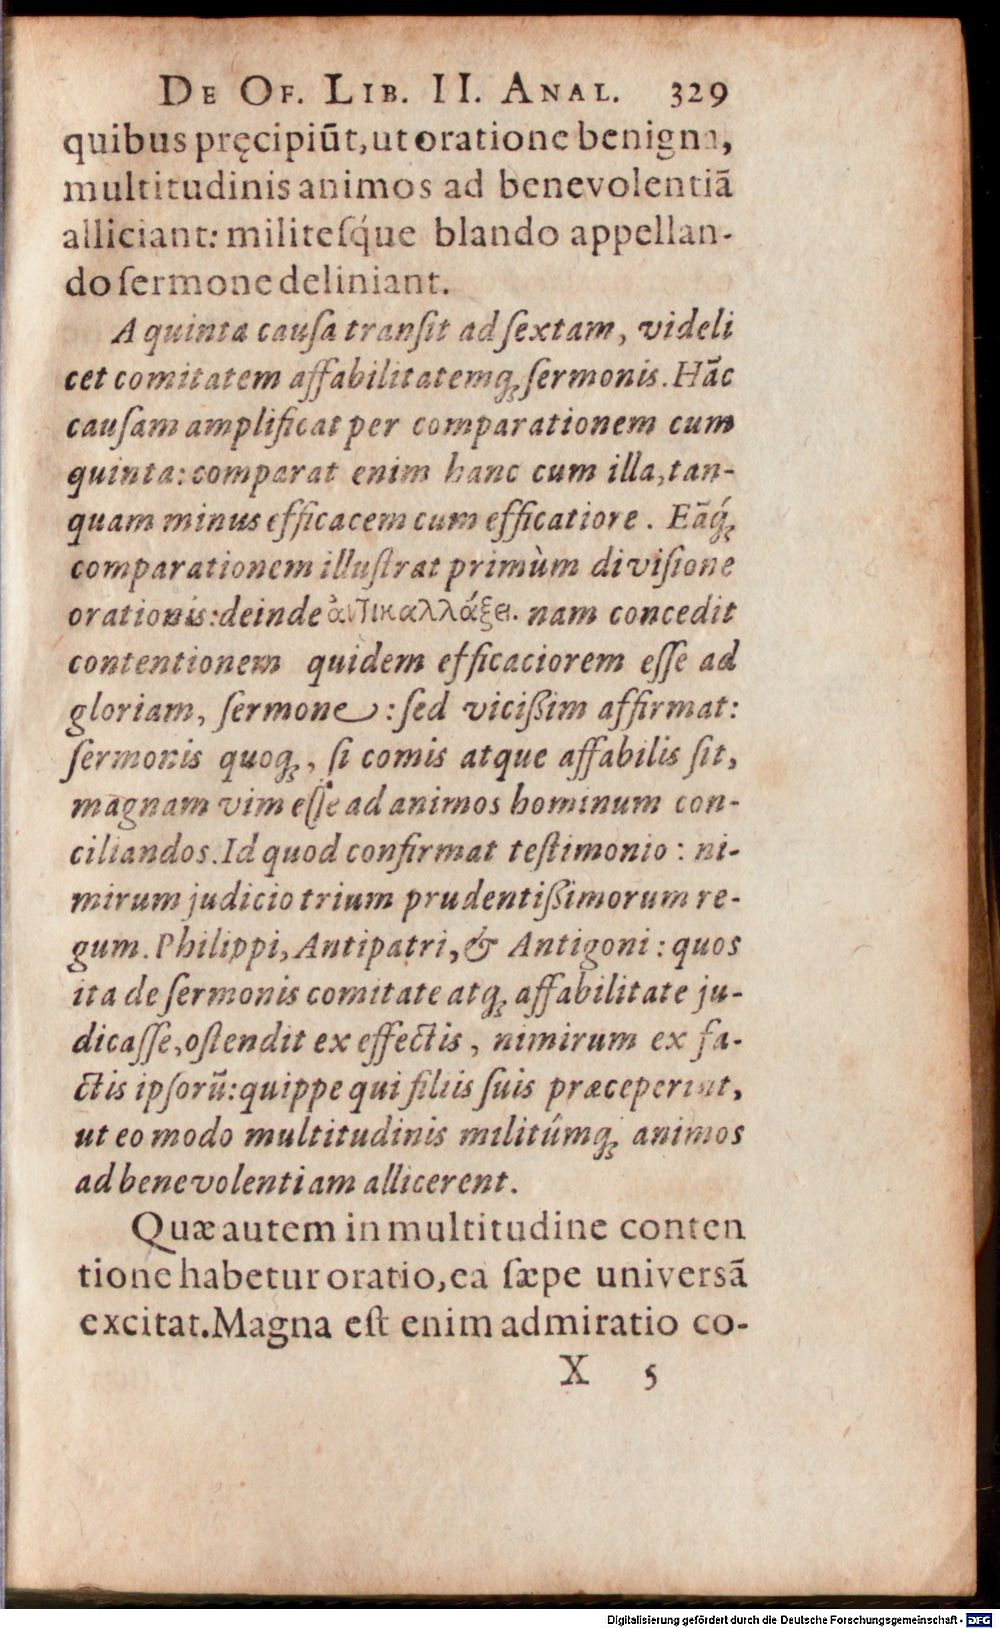 DE OF. LIB. II. ANAL. 329
quibus pręcipiūt, ut oratione benigna,
multitudinis animos ad benevolentiā
alliciant: militeſq́ue blando appellan-
do ſermone deliniant.
A quinta cauſa tranſit ad ſextam, videli
cet comitatem affabilitatemq́; ſermonis. Hāc
cauſam amplificat per comparationem cum
quinta: comparat enim hanc cum illa, tan-
quam minus efficacem cum efficatiore. Eāq́;
comparationem illuſtrat primùm diviſione
orationis: deinde ἀντικαλλάξει. nam concedit
contentionem quidem efficaciorem eſſe ad
gloriam, ſermone: ſed viciſſim affirmat:
ſermonis quoq;, ſi comis atque affabilis ſit,
magnam vim eſſe ad animos hominum con-
ciliandos. Id quod confirmat teſtimonio: ni-
mirum judicio trium prudentißimorum re-
gum. Philippi, Antipatri, & Antigoni: quos
ita de ſermonis comitate atq; affabilitate ju-
dicaſſe, oſtendit ex effectis, nimirum ex fa-
ctis ipſorū: quippe qui filiis ſuis præceperint,
ut eo modo multitudinis militúmq; animos
ad benevolentiam allicerent.
Quæ autem in multitudine conten
tione habetur oratio, ea ſæpe universā
excitat. Magna eſt enim admiratio co-
X 5
Digitalisierung gefördert durch die Deutsche Forschungsgemeinschaft - DFG